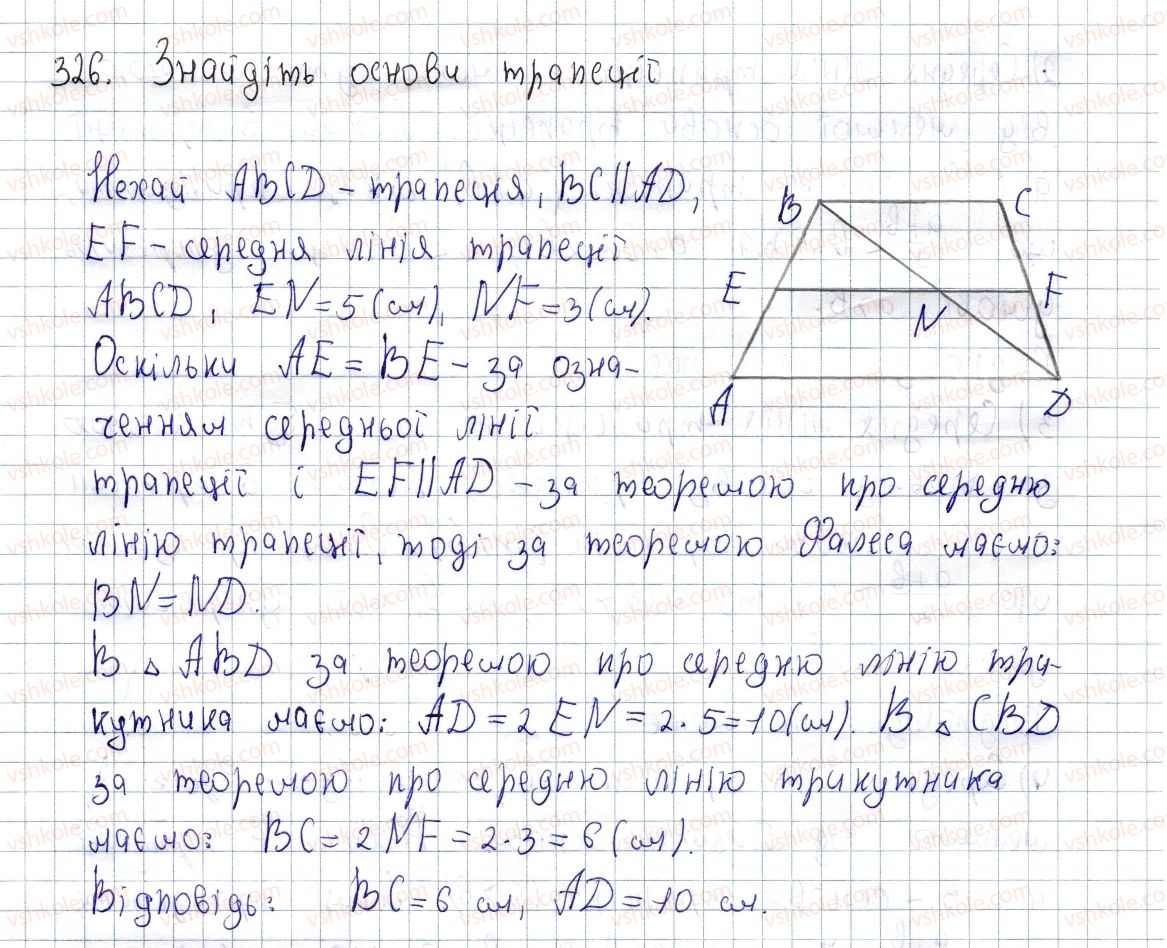 326. Знайдіть основи трапеції
Нехай ABCD – трапеція, BC||AD,
EF – середня лінія трапеції
ABCD, EN = 5 (см), NF = 3 (см).
Оскільки AE = BE – за озна-
ченням середньої лінії
трапеції і EF||AD – за теоремою про середню
лінію трапеції, тоді за теоремою Фалеса маємо:
BN = ND.
В △ ABD за теоремою про середню лінію три-
кутника маємо: AD = 2 EN = 2 · 5 = 10 (см). В △ CBD
за теоремою про середню лінію трикутника
маємо: BC = 2 NF = 2 · 3 = 6 (см).
Відповідь: BC = 6 см, AD = 10 см.
B C
E N F
A D
vshkole.com